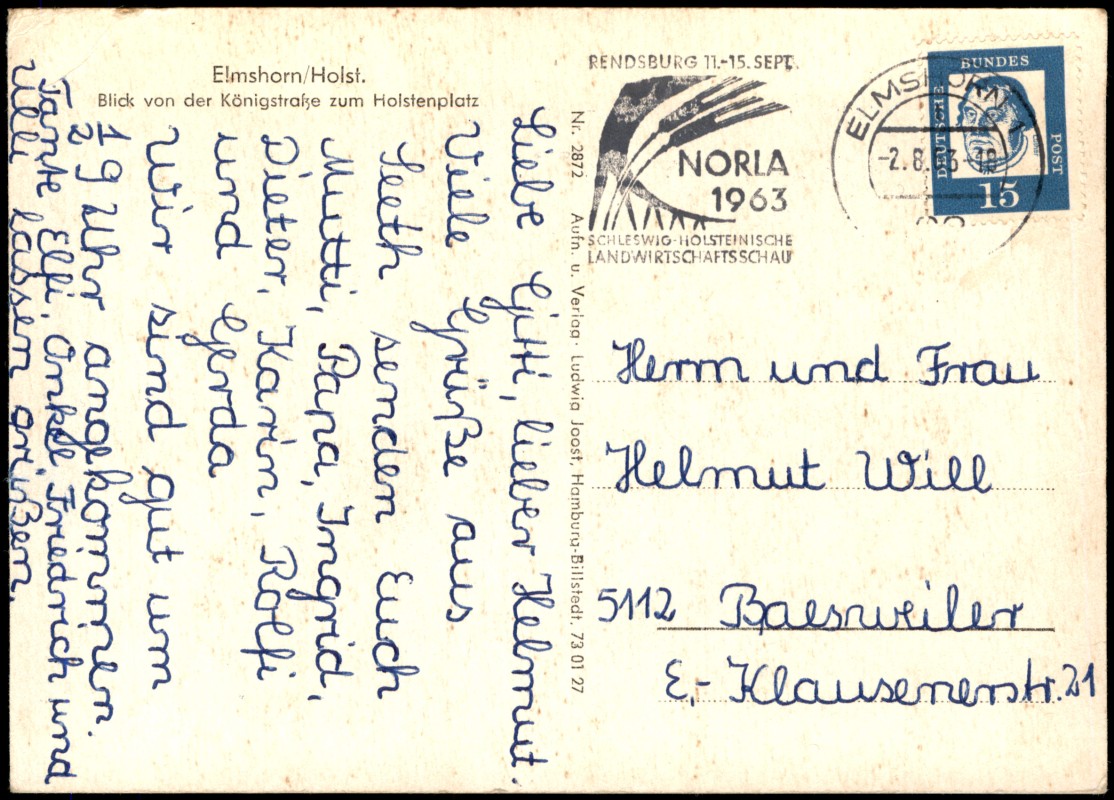 Elmshorn/Holst.
Blick von der Königstraße zum Holstenplatz
Liebe Gitti, lieber Helmut.
Viele Grüße aus
Seeth senden Euch
Mutti, Papa, Ingrid,
Dieter, Karin, Rolfi
und Gerda
Wir sind gut um
1/2 9 Uhr angekommen.
Tante Elfi, Onkel Friedrich und
Ulli lassen grüßen.
Nr. 2872 Aufn. u. Verlag: Ludwig Joost, Hamburg-Billstedt, 73 01 27
RENDSBURG 11.-15. SEPT.
NORLA
1963
SCHLESWIG-HOLSTEINISCHE
LANDWIRTSCHAFTSSCHAU
ELMSHORN 1
-2.8.63-18
DEUTSCHE
BUNDES
POST
15
Herrn und Frau
Helmut Will
5112 Baesweiler
E.-Klausenerstr. 21